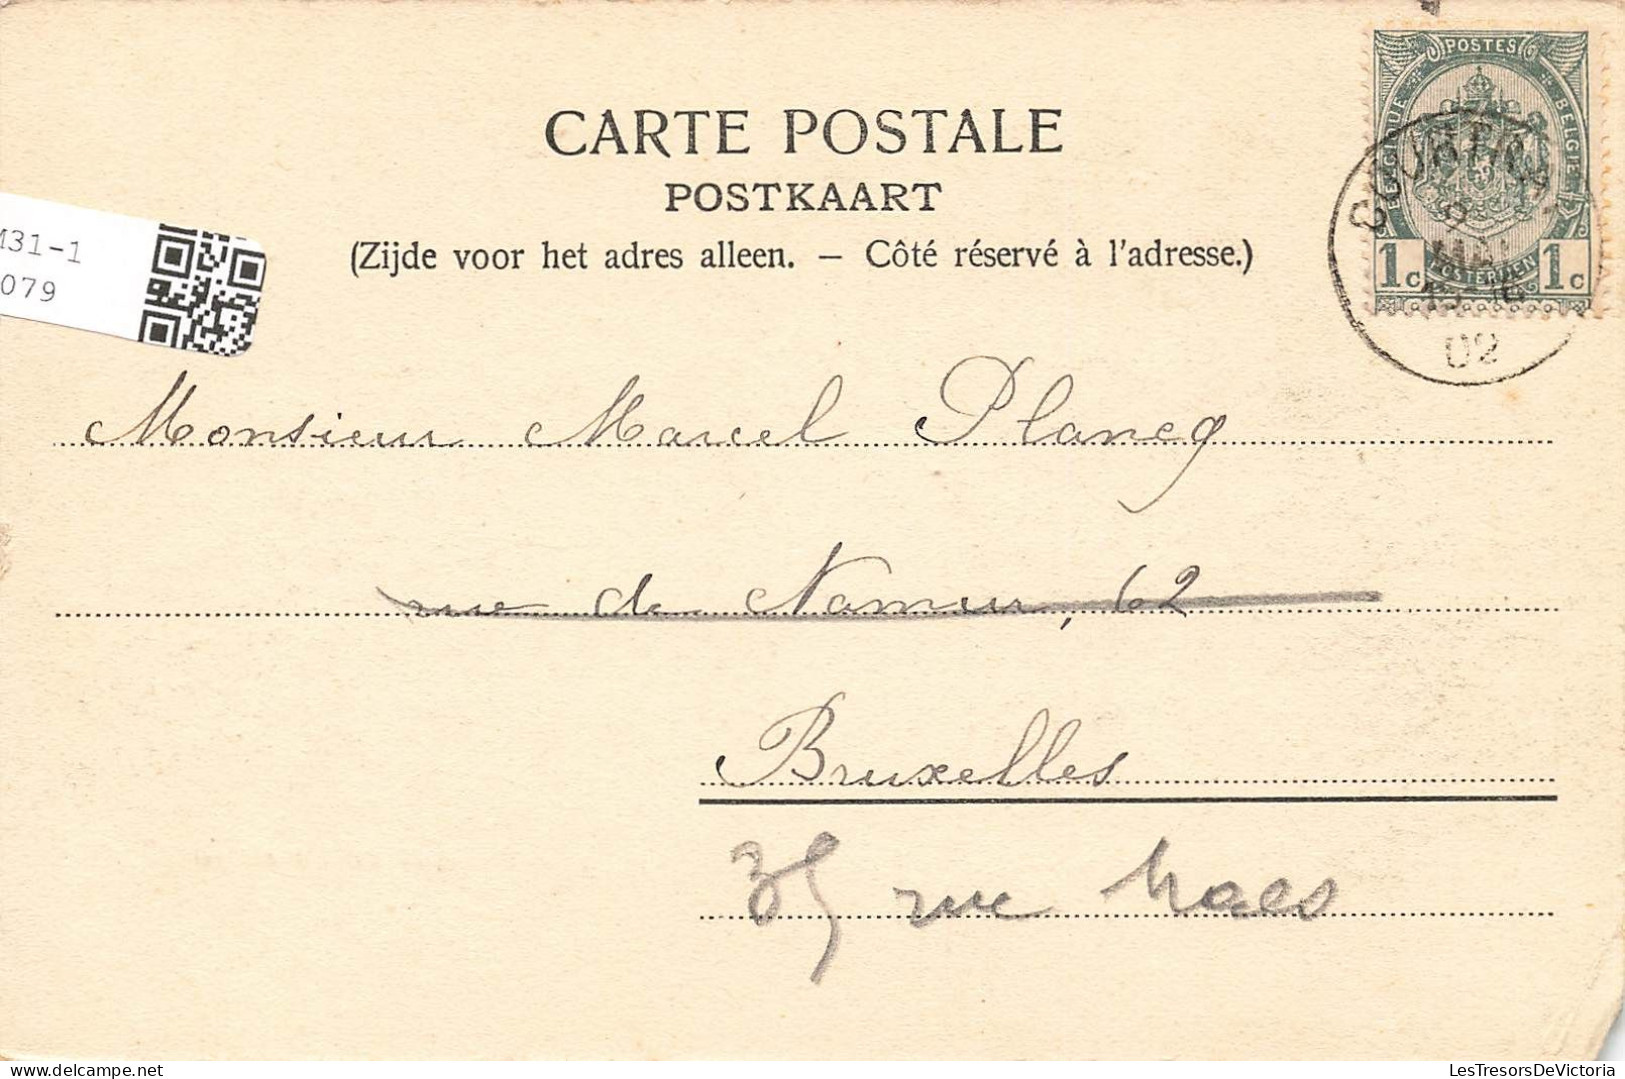 POSTES
BELGIQUE
BELGIE
1c POSTERIJEN 1c
COURTRAI
9
15-16
02
CARTE POSTALE
POSTKAART
(Zijde voor het adres alleen. — Côté réservé à l'adresse.)
M31-1
079
Monsieur Marcel Plancq
rue de Namur, 62
Bruxelles
35 rue Maes
LesTresorsDeVictoria